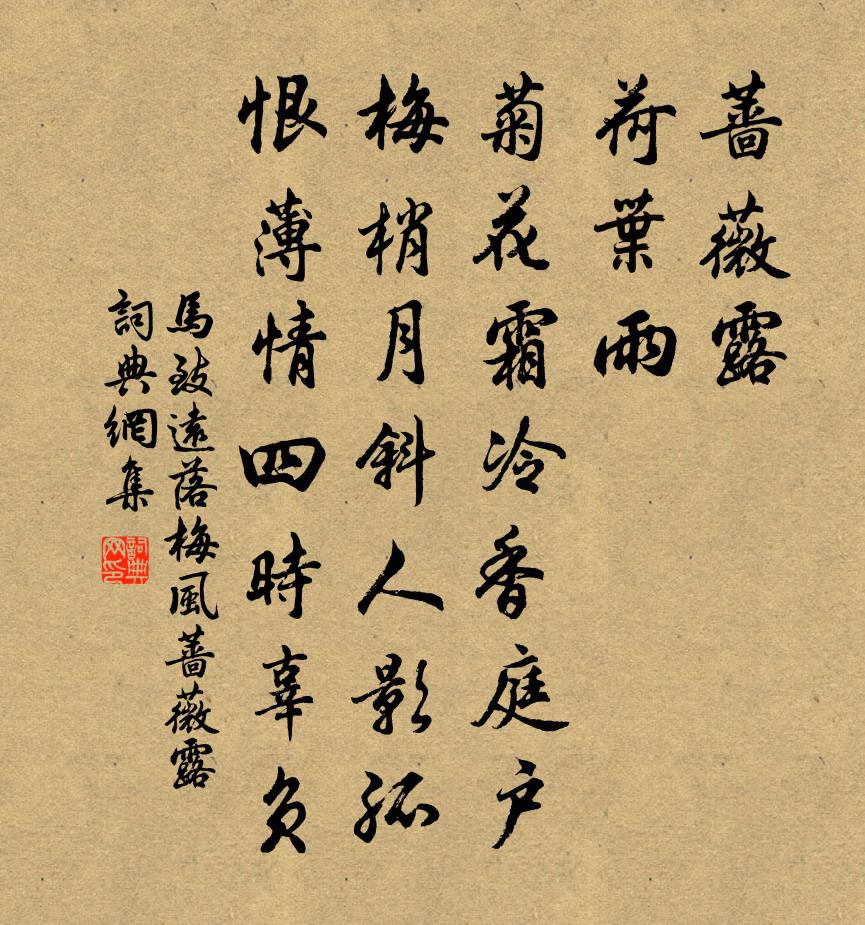 薔薇露
荷葉雨
菊花霜冷香庭户
梅梢月斜人影孤
恨薄情四時辜負
馬致遠落梅風薔薇露
詞典網集
詞典網印